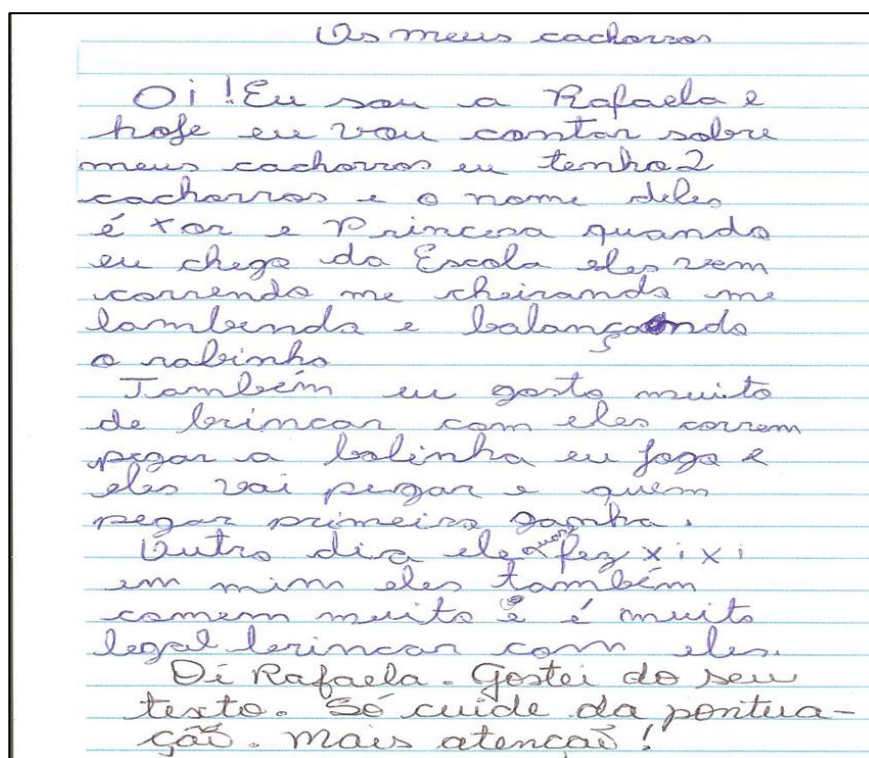 Os meus cachorros
Oi! Eu sou a Rafaela e
hoje eu vou contar sobre
meus cachorros eu tenho 2
cachorros e o nome deles
é xor e Princesa quando
eu chego da Escola eles vem
correndo me cheirando me
lambendo e balançando
o rabinho
Também eu gosto muito
de brincar com eles correm
pegar a bolinha eu jogo e
eles vai pegar e quem
pegar primeiro ganha.
Outro dia ele quase fez xixi
em mim eles também
comem muito e é muito
legal brincar com eles.
Oi Rafaela. Gostei do seu
texto. Só cuide da pontua-
ção. Mais atenção!